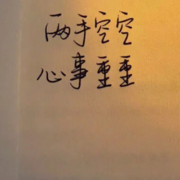 两手空空
心事重重